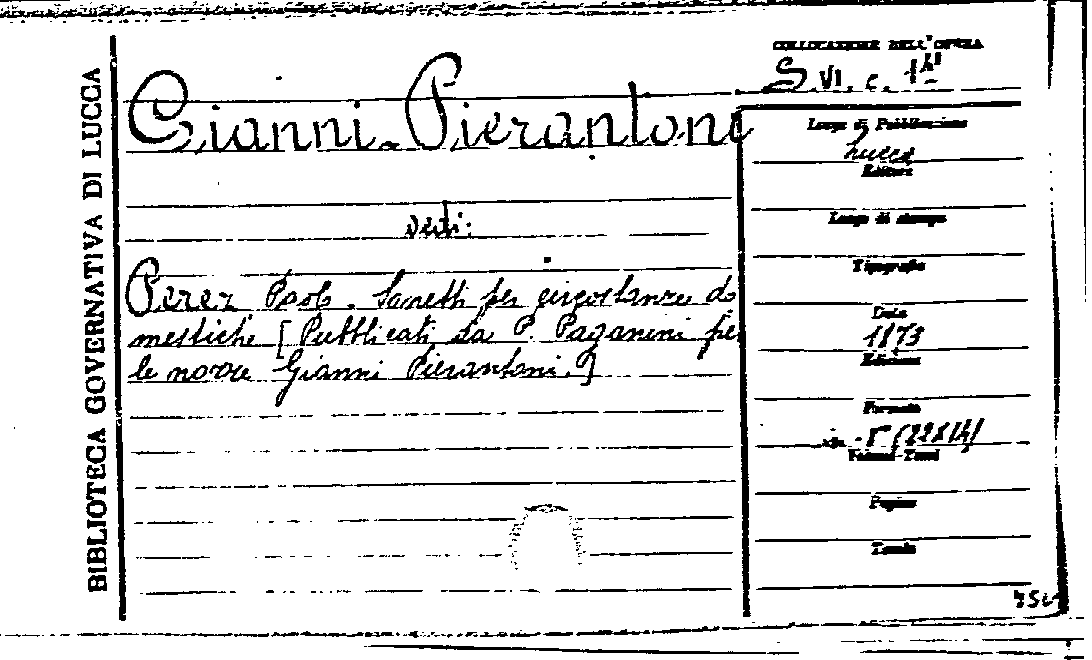 BIBLIOTECA GOVERNATIVA DI LUCCA
COLLOCAZIONE DELL'OPERA
S. VI. c.
Gianni-Pierantoni
vedi:
Perez Paolo. Sonetti per circostanze do
mestiche [Pubblicati da P. Paganini per
le nozze Gianni Pierantoni.]
Luogo di Pubblicazione
Lucca
Editore
Luogo di stampa
Tipografia
Data
1873
Edizione
Formato
(22x14)
Volumi-Tomi
Pagine
Tavole